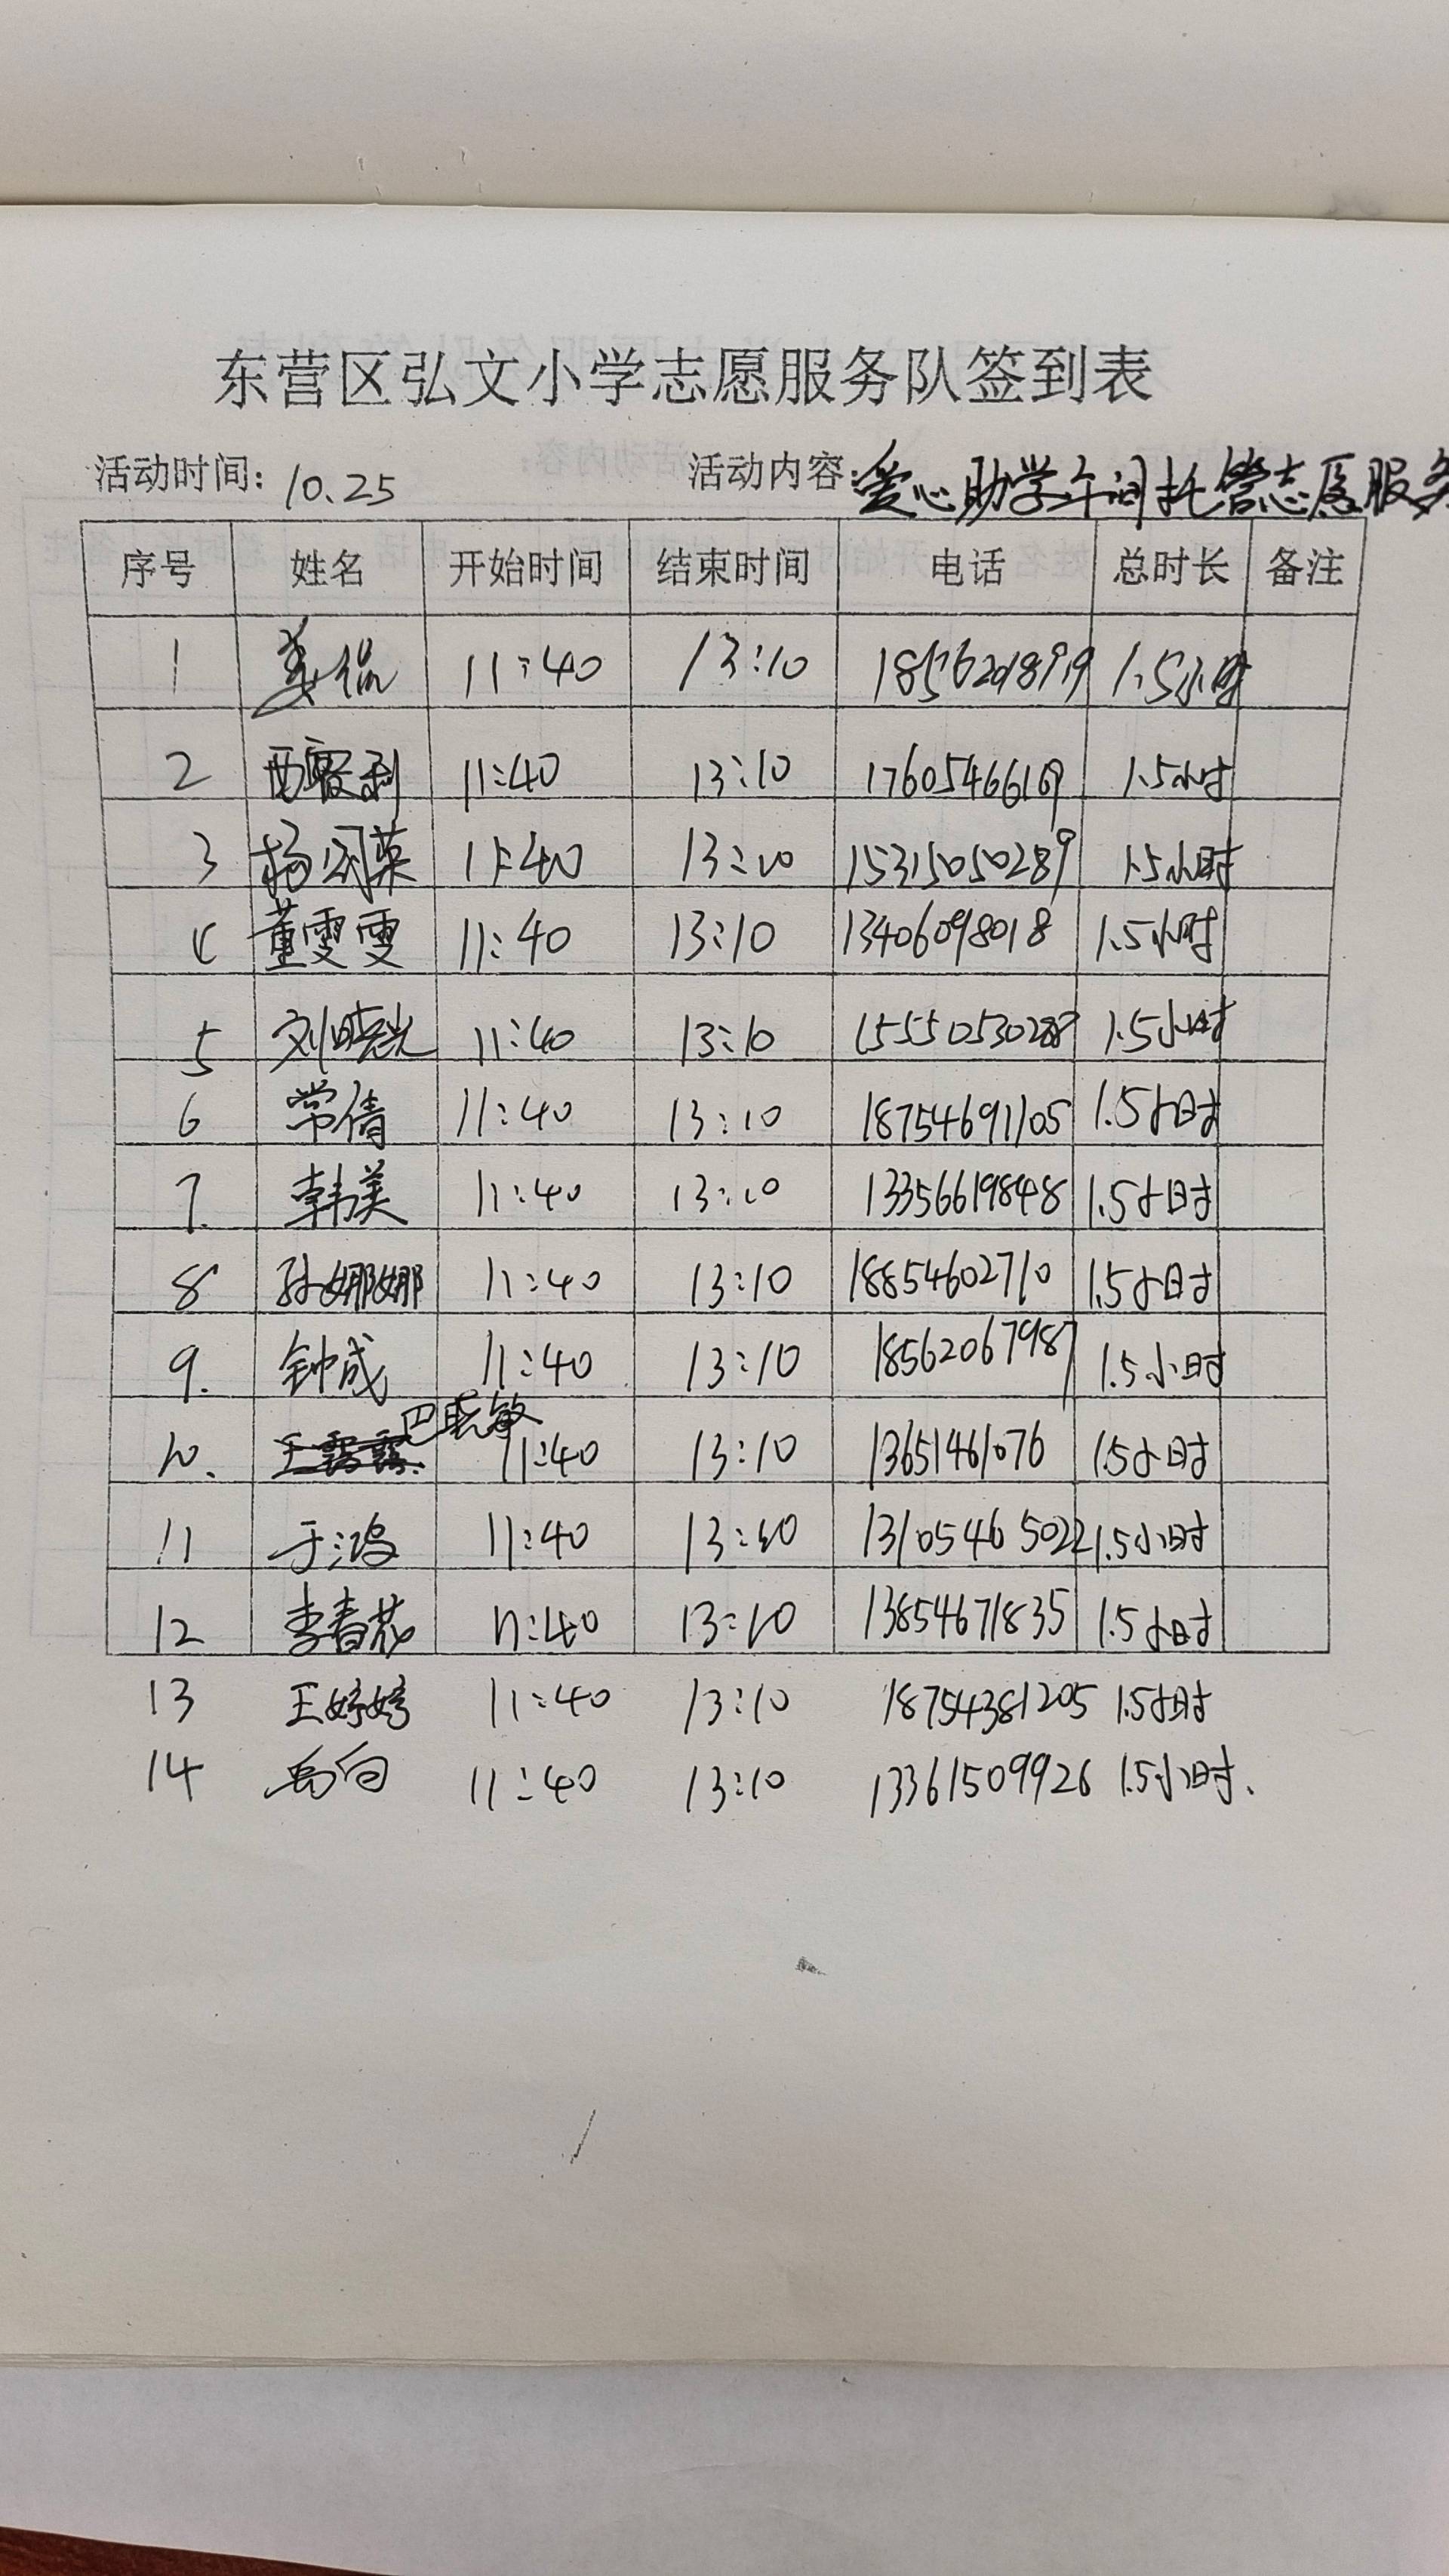 东营区弘文小学志愿服务队签到表
活动时间: 10.25 活动内容: 爱心助学午间托管志愿服务
序号 姓名 开始时间 结束时间 电话 总时长 备注
1 姜 11:40 13:10 1.5小时
2 11:40 13:10 1.5小时
3 杨 英 11:40 13:10 15315050289 1.5小时
4 董雯雯 11:40 13:10 13406098018 1.5小时
5 刘晓光 11:40 13:10 1.5小时
6 常倩 11:40 13:10 18754691105 1.5小时
7. 韩美 11:40 13:10 13356619848 1.5小时
8 孙娜娜 11:40 13:10 18854602710 1.5小时
9. 钟成 11:40 13:10 18562067987 1.5小时
10. 王露露 巴聪敏 11:40 13:10 13651461076 1.5小时
11 于鸿 11:40 13:10 13105465022 1.5小时
12 李春花 11:40 13:10 13854671835 1.5小时
13 王婷婷 11:40 13:10 18754381205 1.5小时
14 11:40 13:10 13361509926 1.5小时.